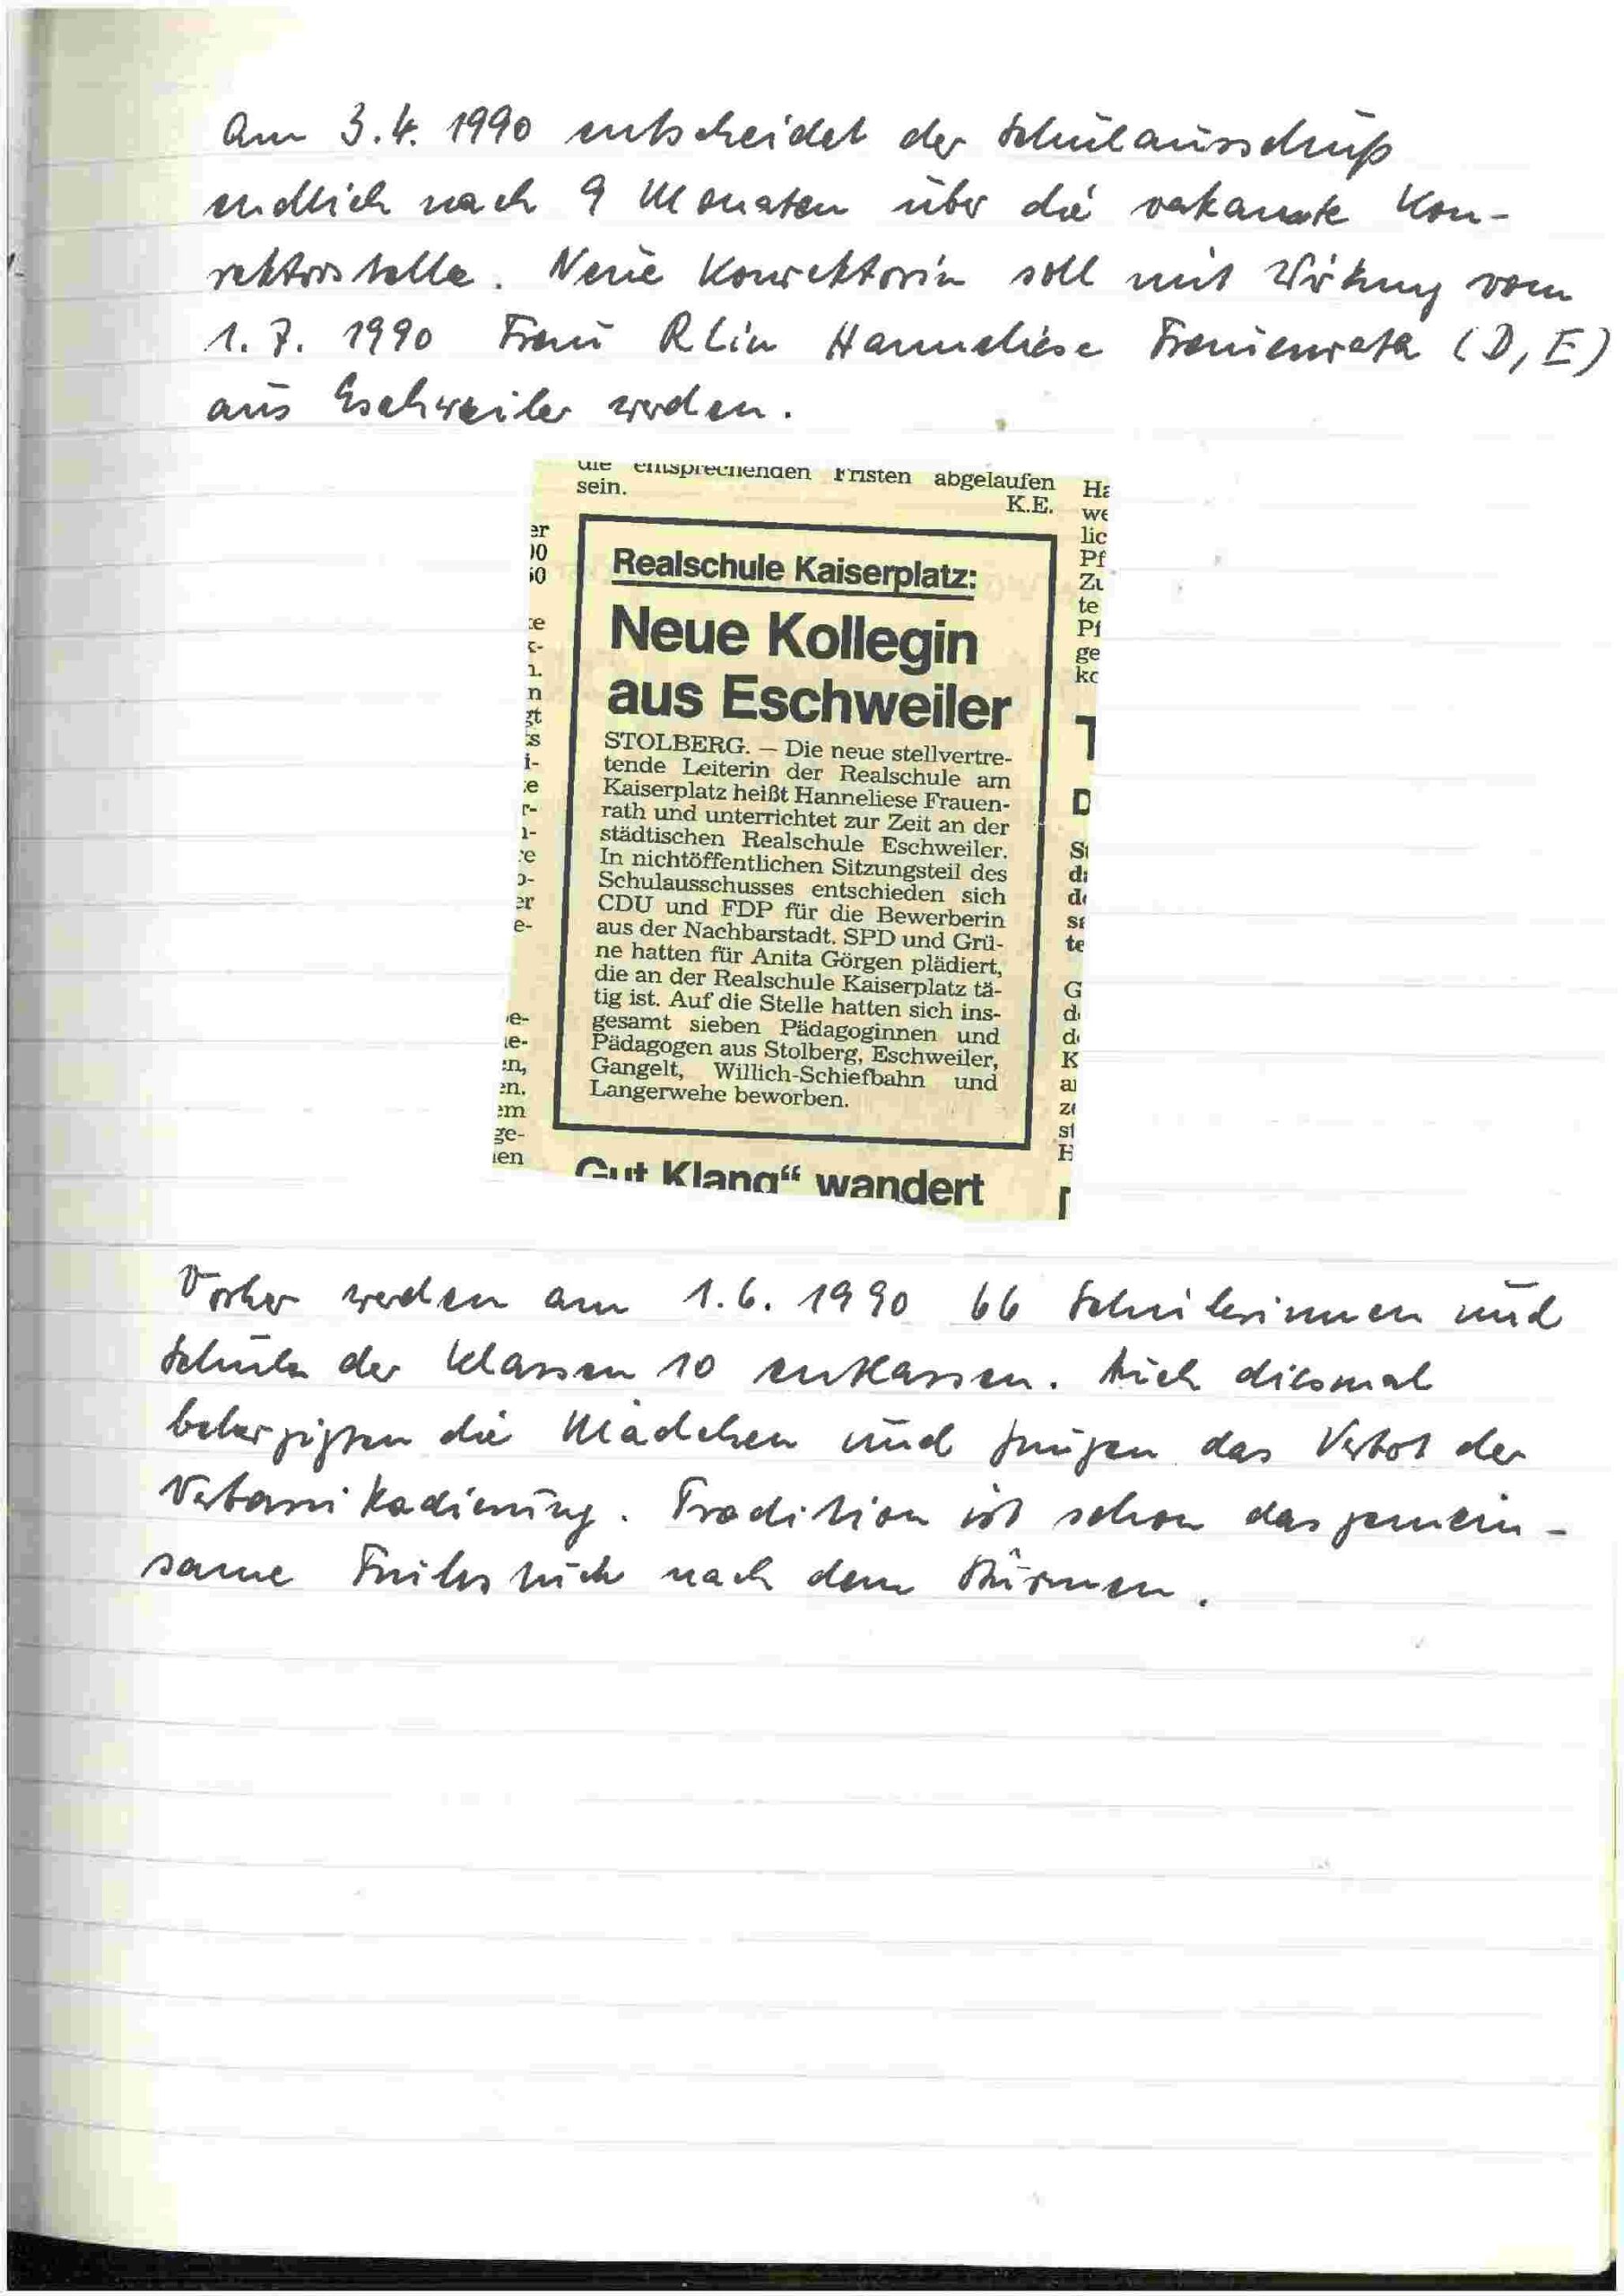 Am 3.4. 1990 entscheidet der Schulausschuß
endlich nach 9 Monaten über die vakante Kon-
rektorstelle. Neue Konrektorin soll mit Wirkung vom
1. 7. 1990 Frau RLin Hanneliese Frauenrath (D, E)
aus Eschweiler werden.
die entsprechenden Fristen abgelaufen
sein.
K.E.
Realschule Kaiserplatz:
Neue Kollegin
aus Eschweiler
STOLBERG. — Die neue stellvertre-
tende Leiterin der Realschule am
Kaiserplatz heißt Hanneliese Frauen-
rath und unterrichtet zur Zeit an der
städtischen Realschule Eschweiler.
In nichtöffentlichen Sitzungsteil des
Schulausschusses entschieden sich
CDU und FDP für die Bewerberin
aus der Nachbarstadt. SPD und Grü-
ne hatten für Anita Görgen plädiert,
die an der Realschule Kaiserplatz tä-
tig ist. Auf die Stelle hatten sich ins-
gesamt sieben Pädagoginnen und
Pädagogen aus Stolberg, Eschweiler,
Gangelt, Willich-Schiefbahn und
Langerwehe beworben.
Gut Klang“ wandert
Vorher werden am 1.6. 1990 66 Schülerinnen und
Schüler der Klassen 10 entlassen. Auch diesmal
beherzigten die Mädchen und Jungen das Verbot der
Verbarrikadierung. Tradition ist schon das gemein-
same Frühstück nach dem Stürmen.